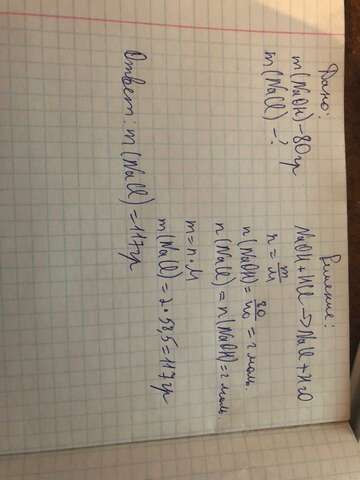 Дано:
m(NaOH)-80гр
m(NaCl) - ?
Решение:
NaOH + HCl -> NaCl + H2O
n = m/M
n(NaOH) = 80/40 = 2 моль.
n(NaCl) = n(NaOH) = 2 моль.
m = n · M
m(NaCl) = 2 · 58,5 = 117гр
Ответ: m(NaCl) = 117гр